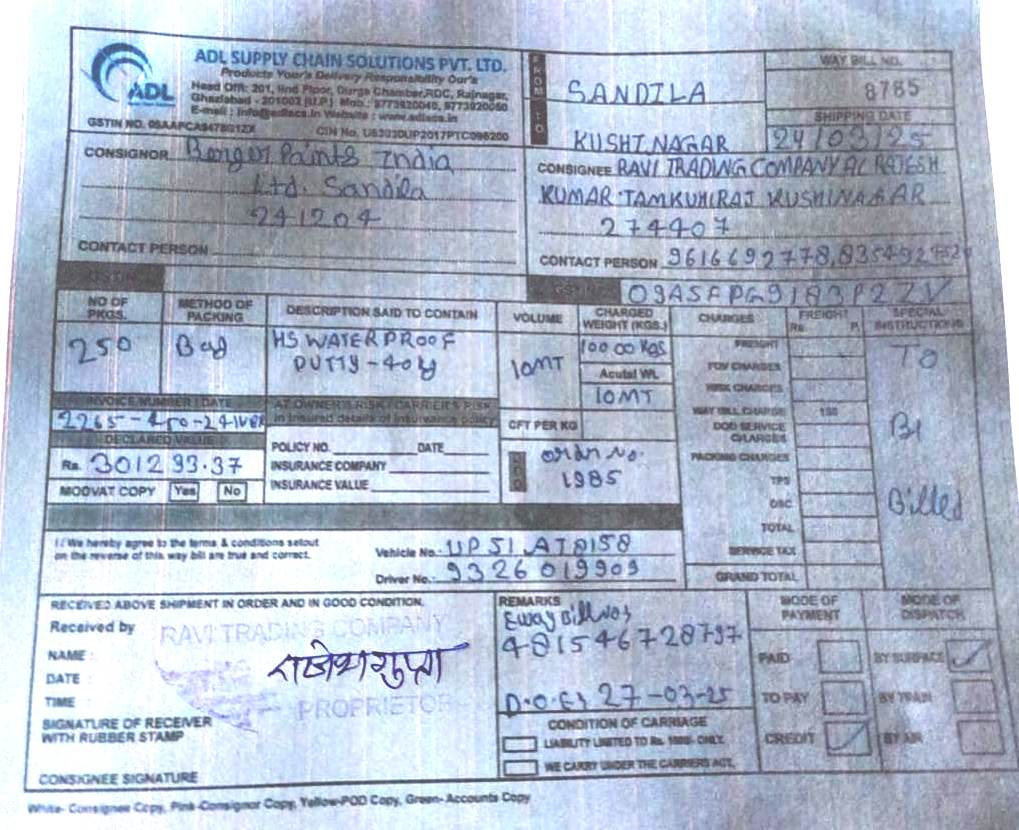 ADL
ADL SUPPLY CHAIN SOLUTIONS PVT. LTD.
Products Your's Delivery Responsibility Our's
Head Off: 201, IInd Floor, Durga Chamber, RDC, Rajnagar,
Ghaziabad - 201002 (U.P.) Mob.:
E-mail : info@adlscs.in Website : www.adlscs.in
GSTIN NO.
CIN No. U63030UP2017PTC096200
FROM SANDILA
TO KUSHINAGAR
WAY BILL NO.
8785
SHIPPING DATE
24/03/25
CONSIGNOR Berger Paints India
Ltd. Sandila
241204
CONTACT PERSON
CONSIGNEE RAVI TRADING COMPANY AL RAJESH
KUMAR TAMKUHIRAJ KUSHINAGAR
274407
CONTACT PERSON 9616692778,
GSTIN
GSTIN 09ASFPG9183P2ZV
NO OF PKGS.
METHOD OF PACKING
DESCRIPTION SAID TO CONTAIN
VOLUME
CHARGED WEIGHT (KGS.)
CHARGES
FREIGHT
Rs. P.
SPECIAL INSTRUCTIONS
250
Bag
HS WATERPROOF
PUTTY-40
10MT
10000 KGS
Acutal Wt.
10MT
CFT PER KG
To
Be
Billed
FREIGHT
FOV CHARGES
RISK CHARGES
WAY BILL CHARGE 150
DOD SERVICE CHARGES
PACKING CHARGES
TPS
OSC
TOTAL
SERVICE TAX
GRAND TOTAL
INVOICE NUMBER / DATE
DECLARED VALUE
Rs. 301293.37
MODVAT COPY Yes No
AT OWNER'S RISK / CARRIER'S RISK
in Insured details of insurance policy
POLICY NO. DATE
INSURANCE COMPANY
INSURANCE VALUE
Ordn No.
1985
I / We hereby agree to the terms & conditions setout
on the reverse of this way bill are true and correct.
Vehicle No. UP51 AT8158
Driver No.: 9326019909
RECEIVED ABOVE SHIPMENT IN ORDER AND IN GOOD CONDITION.
Received by
RAVI TRADING COMPANY
NAME :
DATE :
TIME :
PROPRIETOR
SIGNATURE OF RECEIVER
WITH RUBBER STAMP
CONSIGNEE SIGNATURE
REMARKS
Eway Bill No
481546728797
27-03-25
CONDITION OF CARRIAGE
LIABILITY LIMITED TO Rs. ONLY.
WE CARRY UNDER THE CARRIERS ACT.
MODE OF PAYMENT
PAID
TO PAY
CREDIT
MODE OF DISPATCH
BY SURFACE
BY TRAIN
BY AIR
White- Consignee Copy, Pink-Consignor Copy, Yellow-POD Copy, Green- Accounts Copy